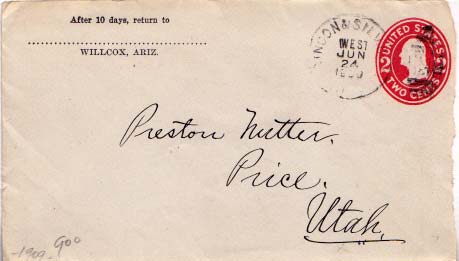 After 10 days, return to
WILLCOX, ARIZ.
WEST
JUN
24
UNITED STATES
2
TWO CENTS
Preston Nutter.
Price.
Utah.